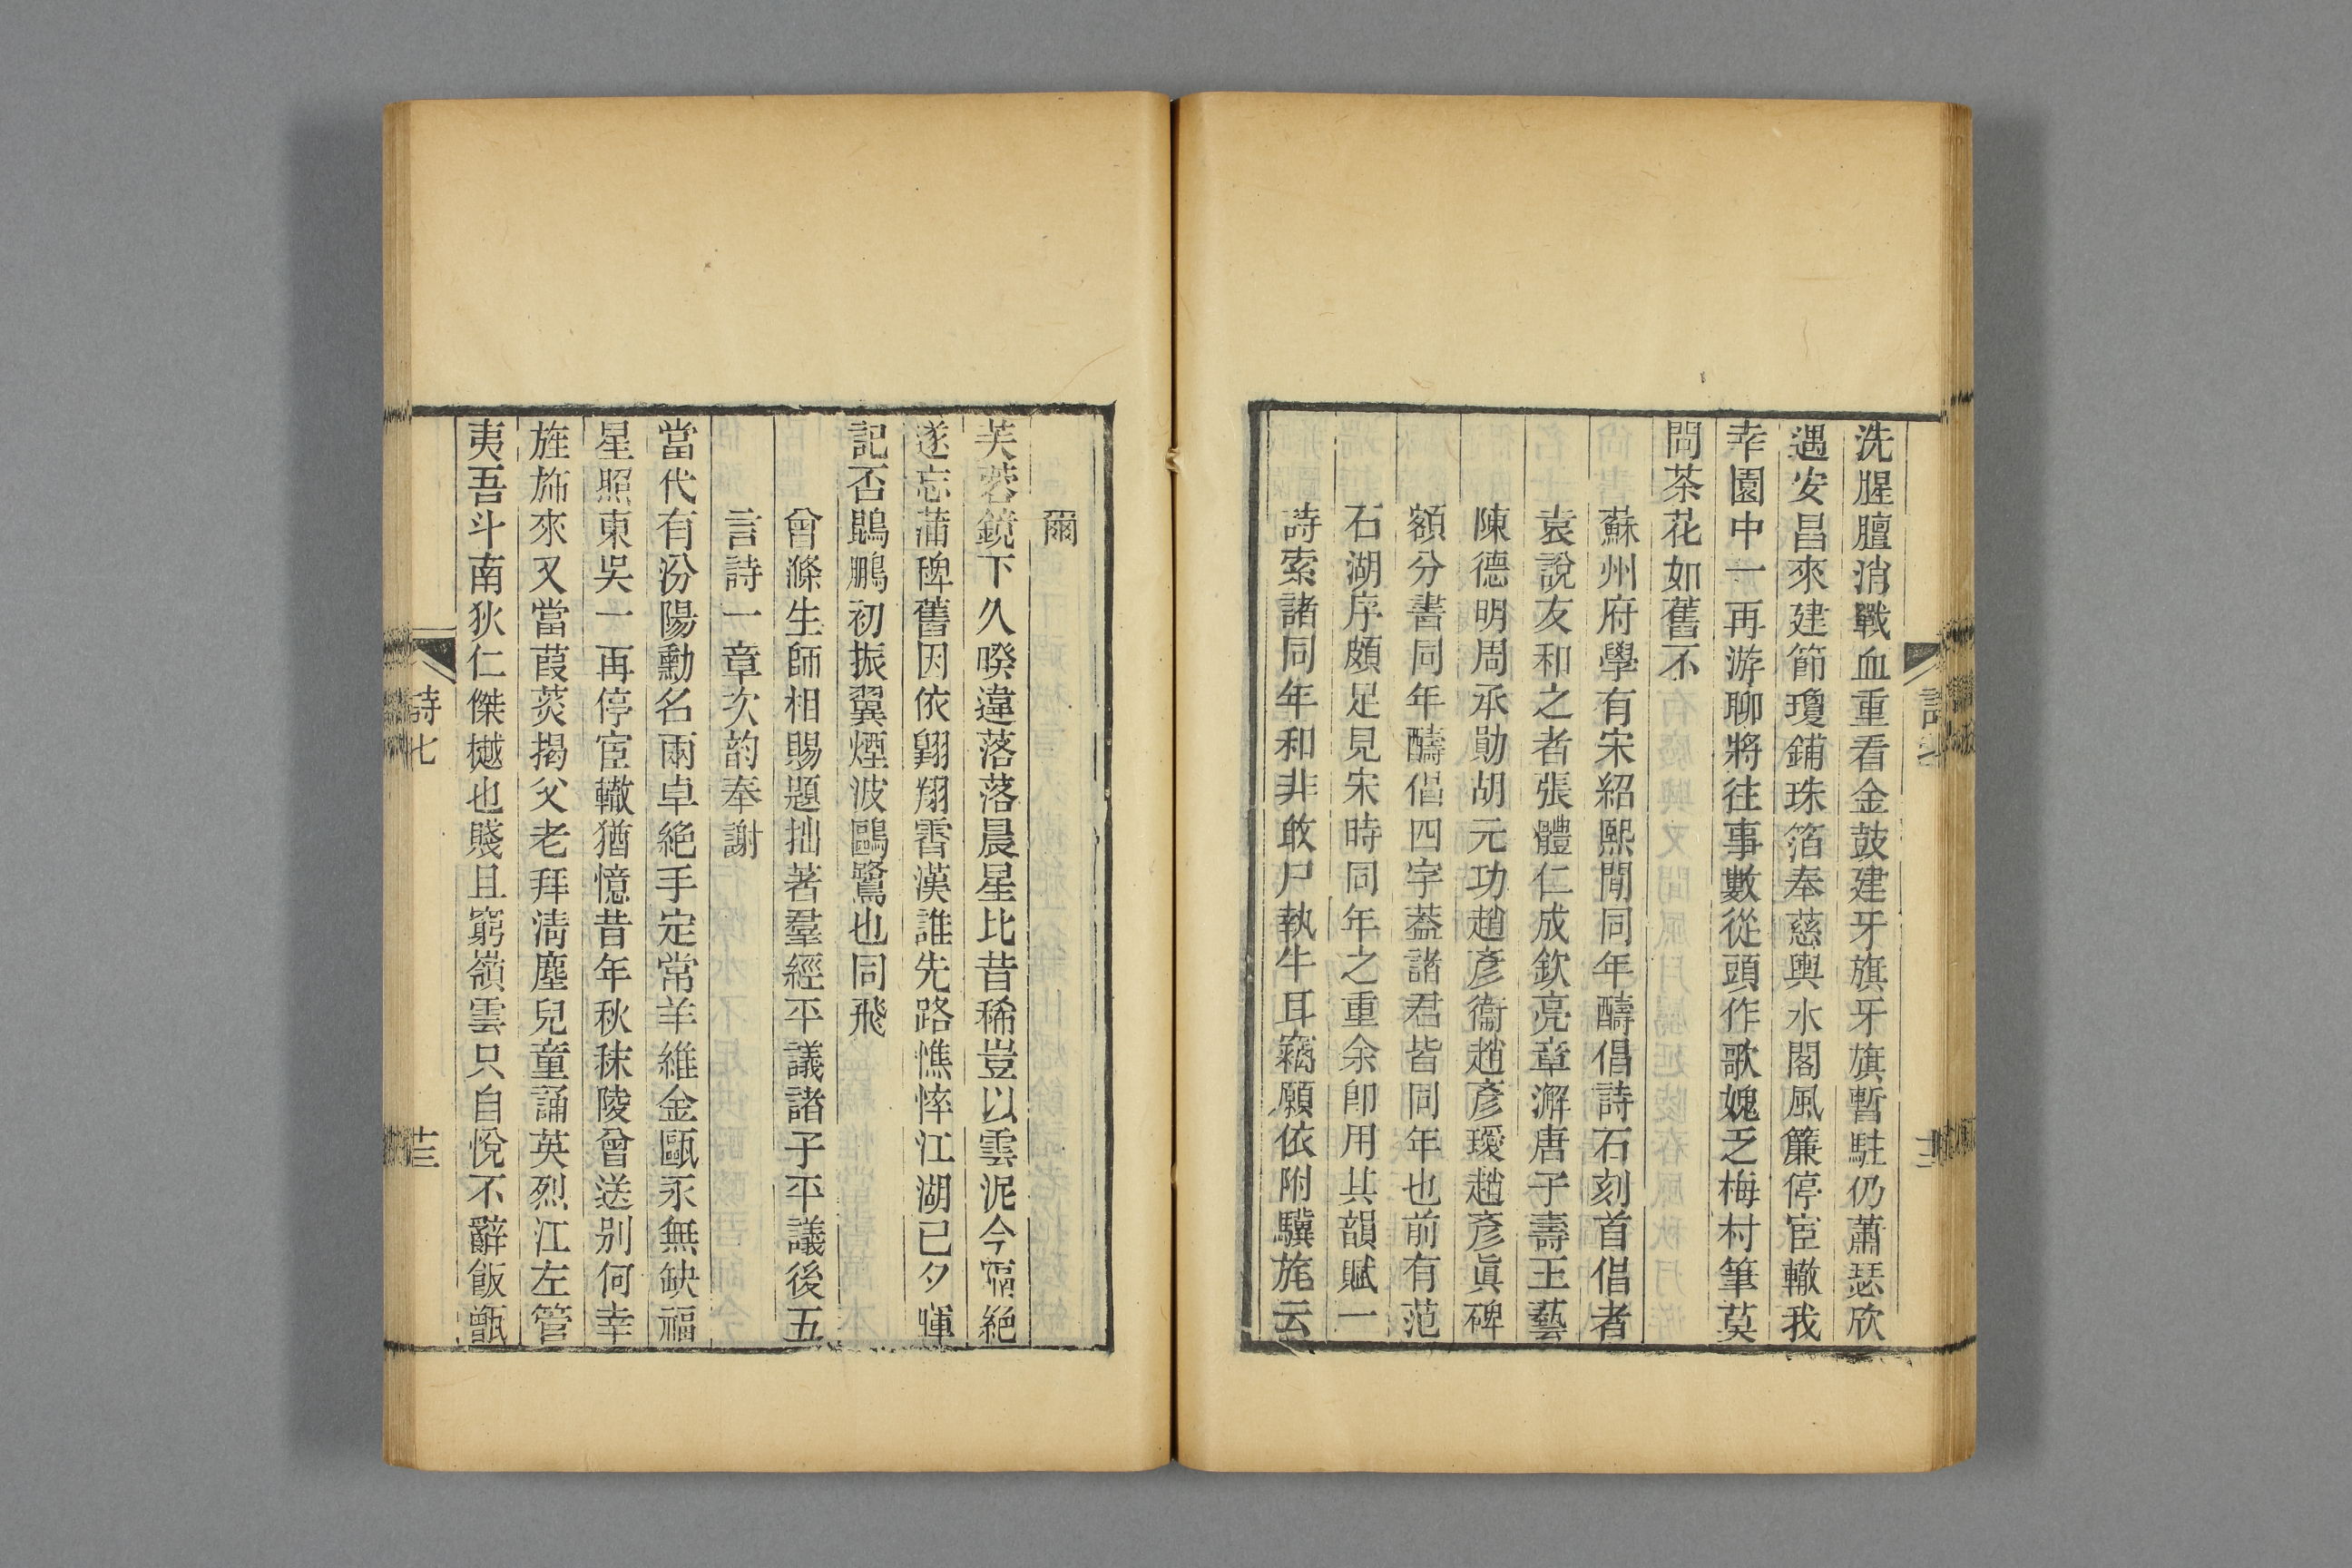 洗腥膻消戰血重看金鼓建牙旗牙旗暫駐仍蕭瑟欣
遇安昌來建節瓊鋪珠箔奉慈輿水閣風簾停宦轍我
幸園中一再游聊將往事數從頭作歌媿乏梅村筆莫
問茶花如舊不
蘇州府學有宋紹熙閒同年醻倡詩石刻首倡者
袁說友和之者張體仁成欽亮章澥唐子壽王藝
陳德明周承勛胡元功趙彥衞趙彥瑗趙彥眞碑
額分書同年醻倡四字葢諸君皆同年也前有范
石湖序頗足見宋時同年之重余卽用其韻賦一
詩索諸同年和非敢尸執牛耳竊願依附驥旄云
爾
芙蓉鏡下久暌違落落晨星比昔稀豈以雲泥今隔絕
遂忘蒲稗舊因依翺翔霄漢誰先路憔悴江湖已夕暉
記否鵾鵬初振翼煙波鷗鷺也同飛
曾滌生師相賜題拙著羣經平議諸子平議後五
言詩一章次韵奉謝
當代有汾陽勳名兩卓絕手定常羊維金甌永無缺福
星照東吳一再停宦轍猶憶昔年秋秣陵曾送别何幸
旌斾來又當葭菼揭父老拜淸塵兒童誦英烈江左管
夷吾斗南狄仁傑樾也賤且窮嶺雲只自悅不辭飯甑
詩七